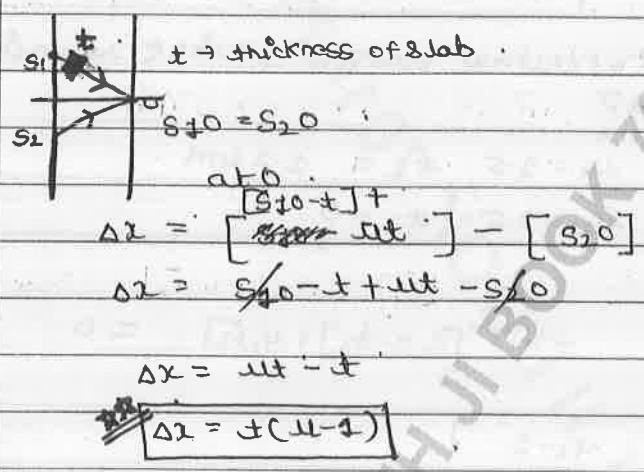 t
S1
t → thickness of slab .
O
S2
S1O = S2O
at O .
[S1O-t] +
Δx = [ μt ] - [S2O]
Δx = S1O - t + μt - S2O
Δx = μt - t
Δx = t(μ-1)
JI BOOK